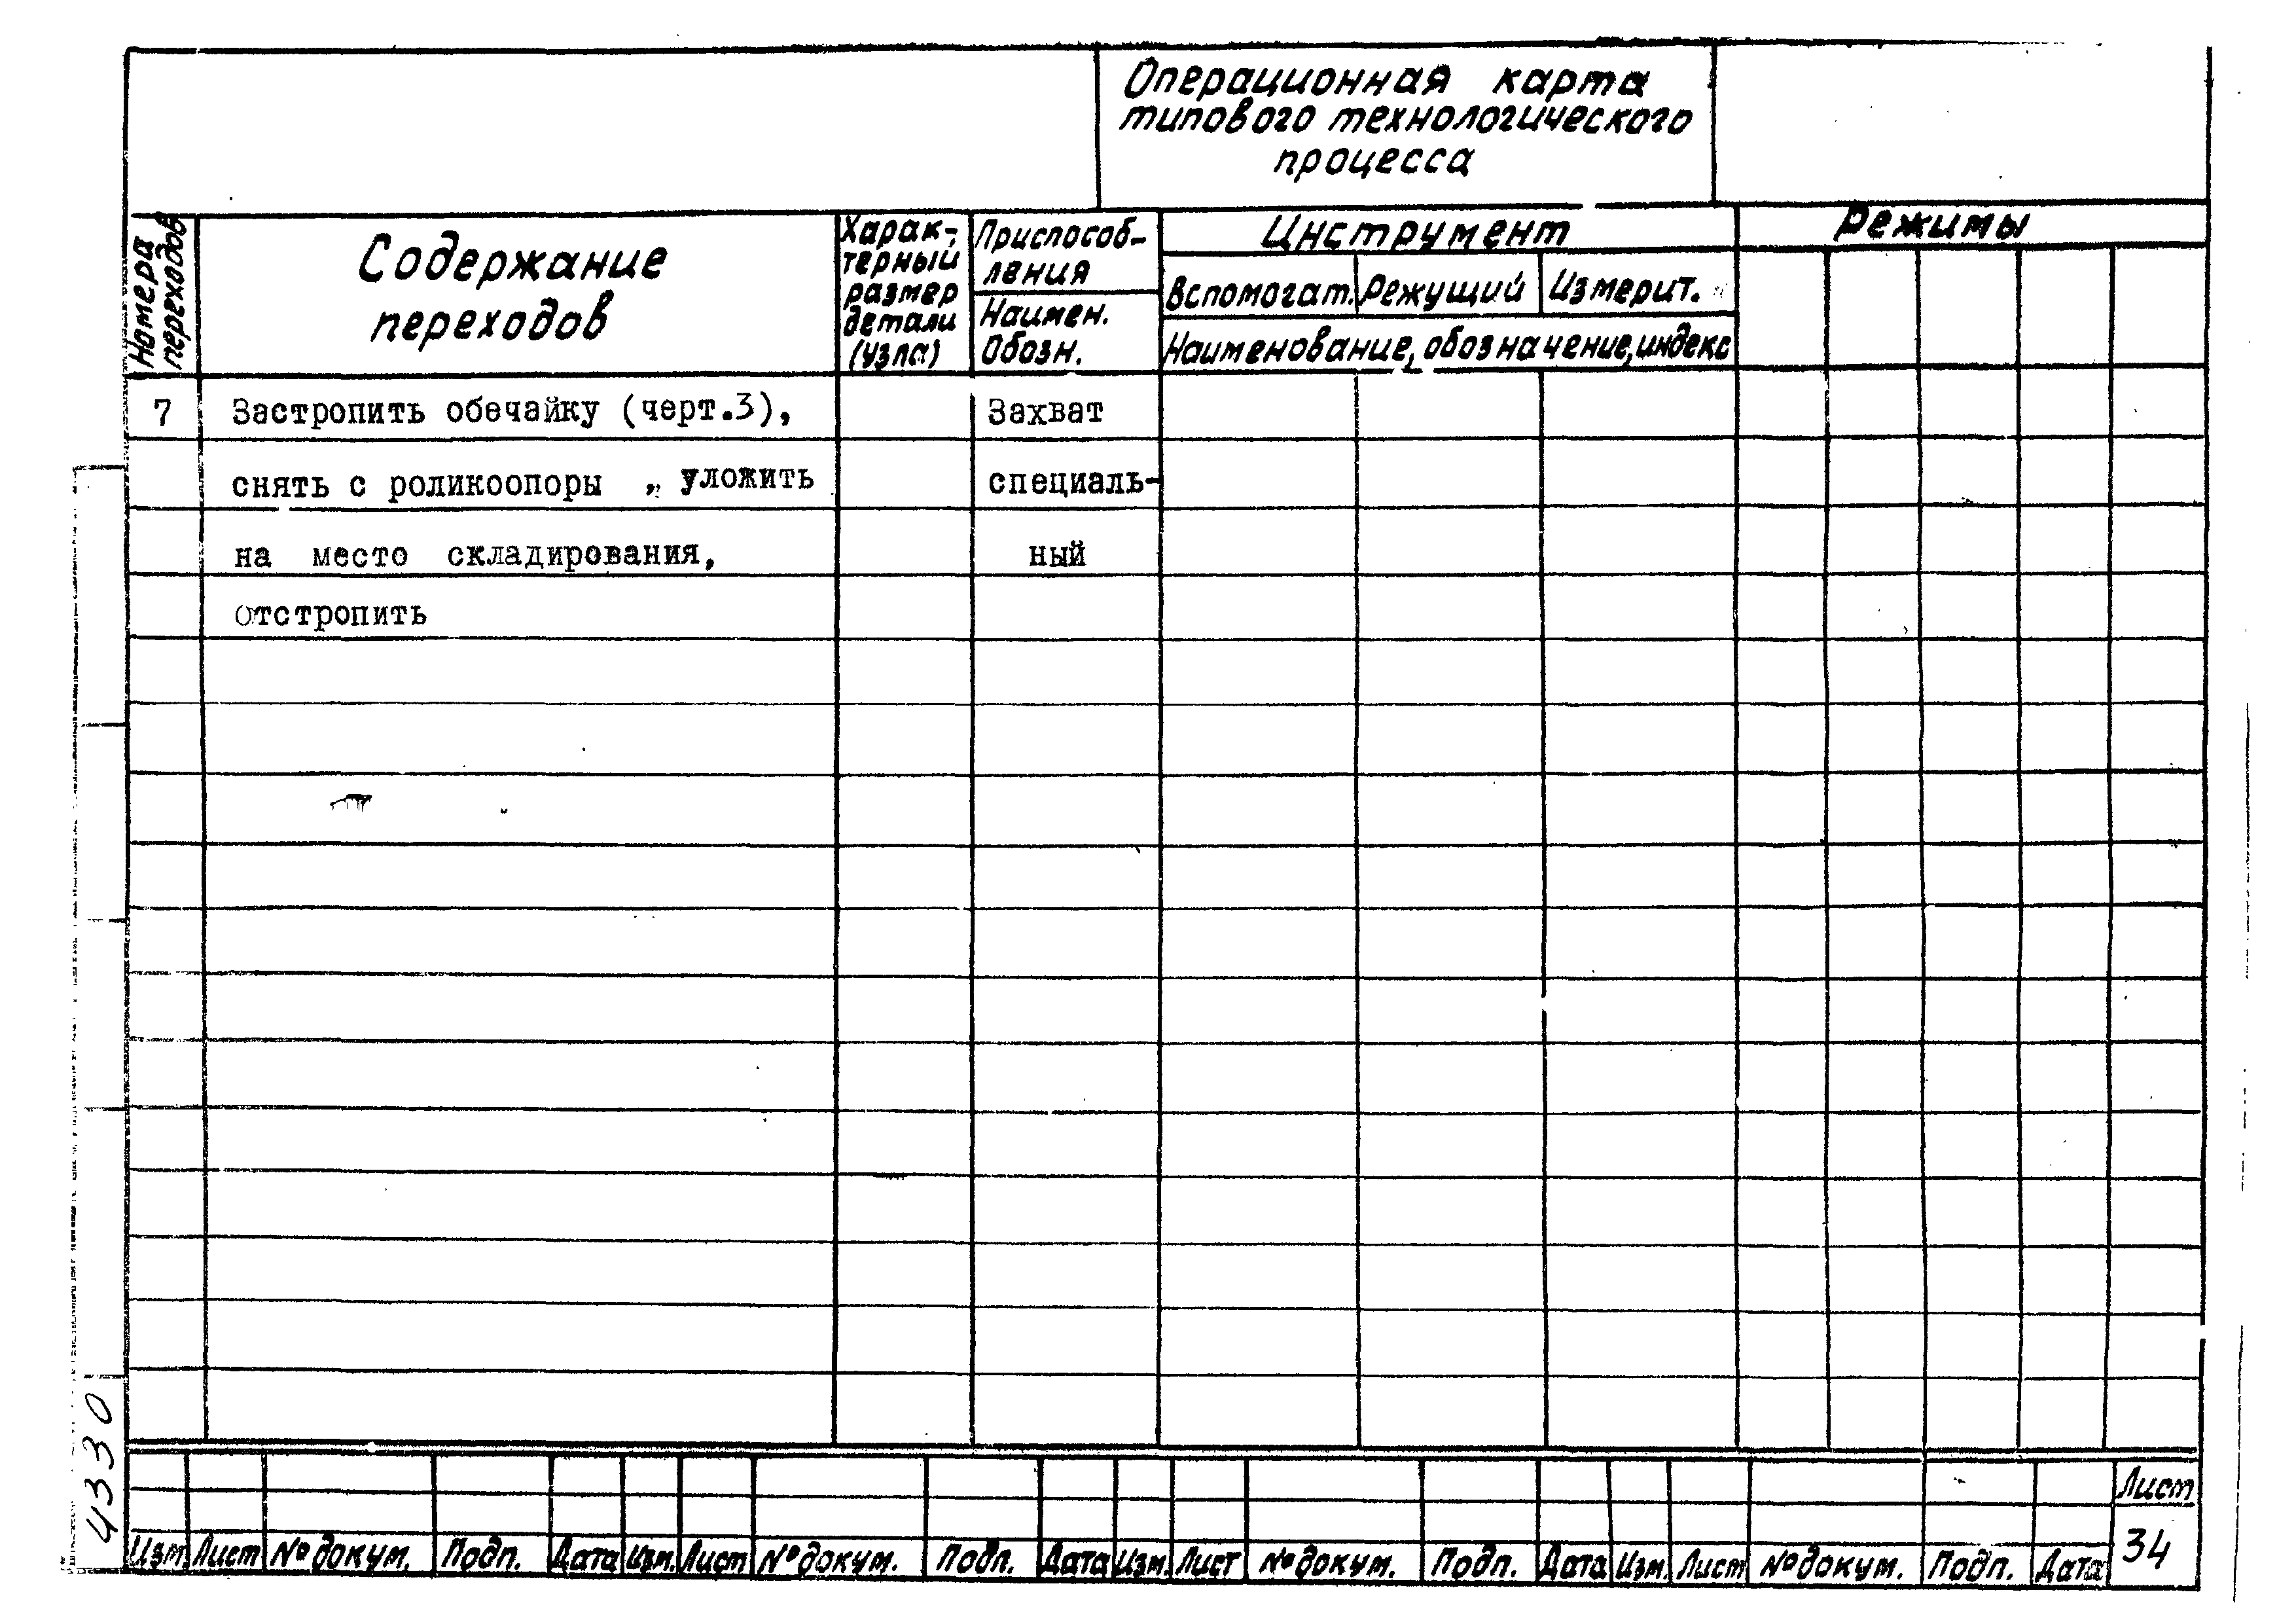 Операционная карта
типового технологического
процесса
Номера
переходов
Содержание
переходов
Харак-
терный
размер
детали
(узла)
Приспособ-
ления
Наимен.
Обозн.
Инструмент
Вспомогат. Режущий Измерит.
Наименование, обозначение, индекс
Режимы
7 Застропить обечайку (черт.3), Захват
снять с роликоопоры , уложить специаль-
на место складирования, ный
отстропить
4330
Лист
34
Изм. Лист № докум. Подп. Дата Изм. Лист № докум. Подп. Дата Изм. Лист № докум. Подп. Дата Изм. Лист № докум. Подп. Дата